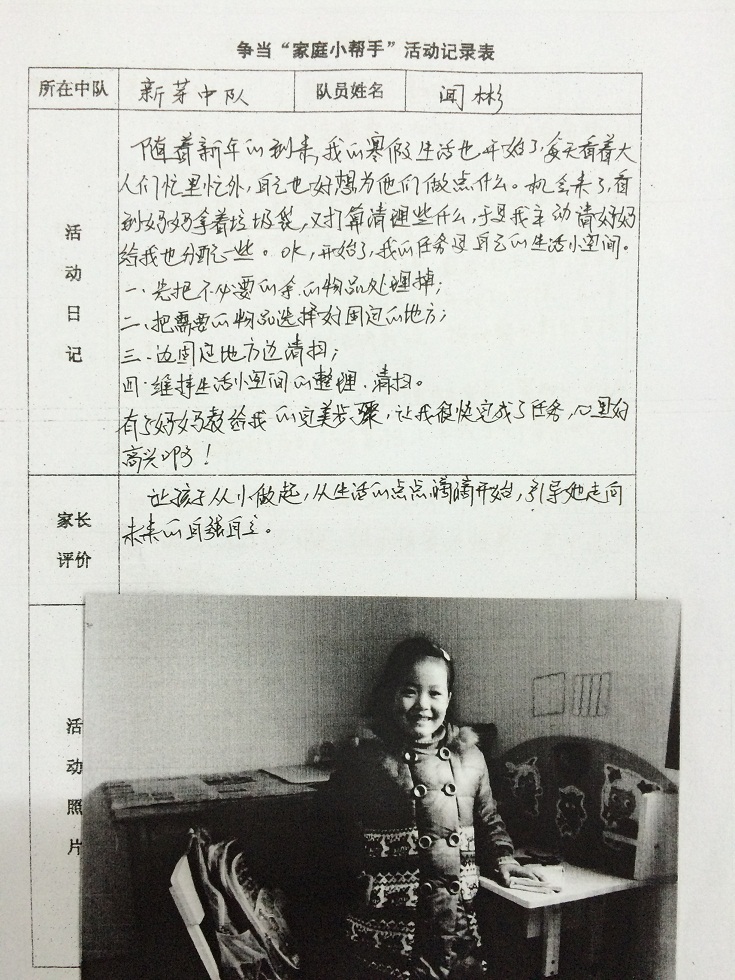 争当“家庭小帮手”活动记录表
所在中队 新芽中队 队员姓名 闻彬
活动日记
随着新年的到来,我的寒假生活也开始了,每天看着大
人们忙里忙外,自己也好想为他们做点什么。机会来了,看
到妈妈拿着垃圾袋,又打算清理些什么,于是我主动请妈妈
给我也分配一些。OK,开始了,我的任务是自己的生活小空间。
一、先把不必要的多的物品处理掉;
二、把需要的物品选择好固定的地方;
三、边固定地方边清扫;
四、维持生活小空间的整理、清扫。
有了妈妈教给我的完美步骤,让我很快完成了任务,心里好
高兴啊!
家长评价
让孩子从小做起,从生活的点点滴滴开始,引导她走向
未来的自强自立。
活动照片